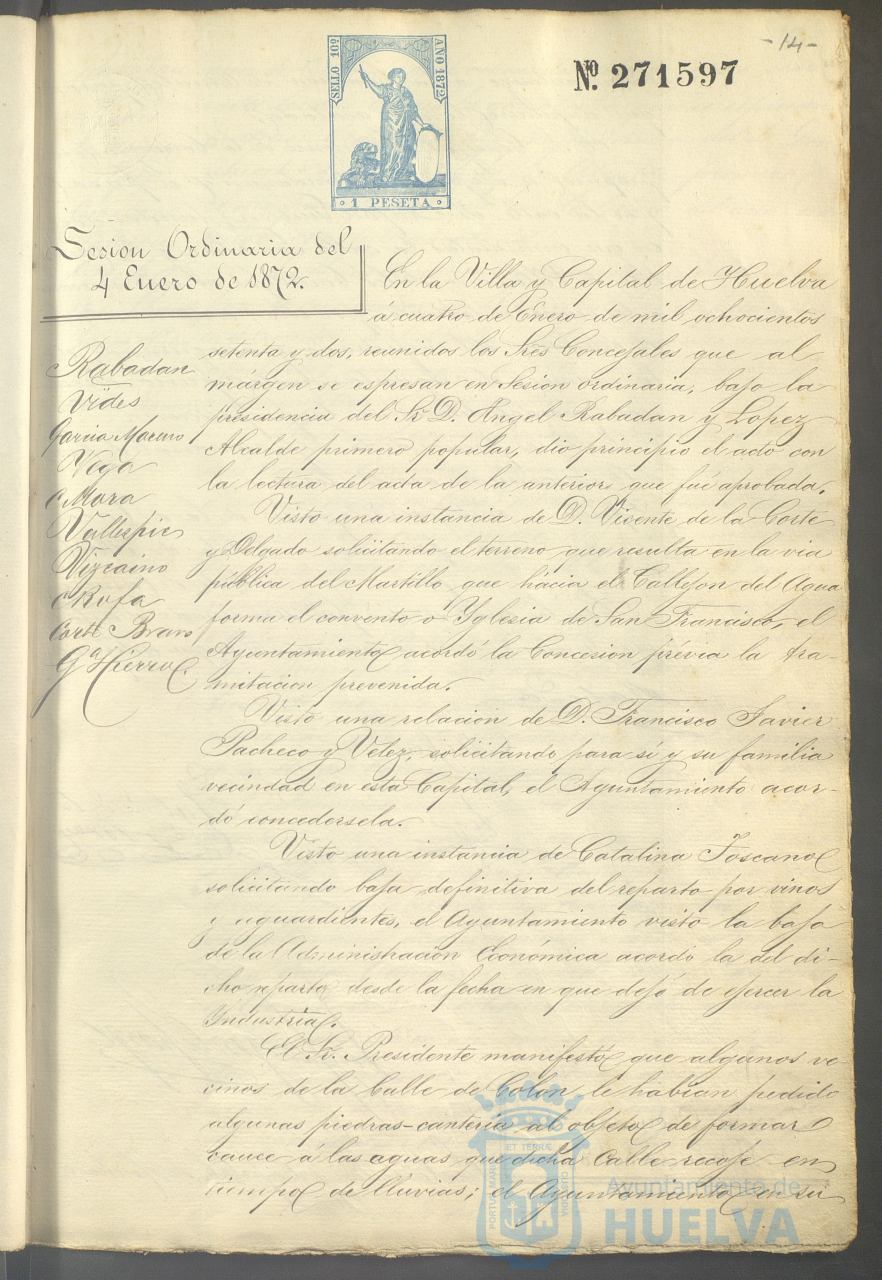 -14-
SELLO 10º
AÑO 1872
Nº. 271597
1 PESETA
Sesion Ordinaria del
4 Enero de 1872.
Rabadan
Vides
Garcia Moreno
Vega
Mora
Vallespin
Vizcaino
Rofa
Corte Bravo
Gª Hierro
En la Villa y Capital de Huelva
á cuatro de Enero de mil ochocientos
setenta y dos, reunidos los Sres Concejales que al
márgen se espresan en Sesion ordinaria, bajo la
presidencia del Sr D. Angel Rabadan y Lopez
Alcalde primero popular, dio principio el acto con
la lectura del acta de la anterior que fué aprobada.
Visto una instancia de D. Vicente de la Corte
y Delgado solicitando el terreno que resulta en la via
pública del Martillo que hácia el Callejon del Agua
forma el convento o Yglesia de San Francisco, el
Ayuntamiento acordó la Concesion prévia la tra-
mitacion prevenida.
Visto una relacion de D. Francisco Javier
Pacheco y Velez, solicitando para sí y su familia
vecindad en esta Capital, el Ayuntamiento acor-
dó concedersela.
Visto una instancia de Catalina Toscano
solicitando baja definitiva del reparto por vinos
y aguardientes, el Ayuntamiento visto la baja
de la Administracion Económica acordó la del di-
cho reparto desde la fecha en que dejó de ejercer la
Industria.
El Sr. Presidente manifestó que algunos ve-
cinos de la Calle de Colon le habian pedido
algunas piedras-canteria al objeto de formar
cauce á las aguas que dicha Calle recoje en
tiempo de lluvias; el Ayuntamiento en su
PORTUS MARIS
ET TERRÆ
CUSTODIA
Ayuntamiento de
HUELVA